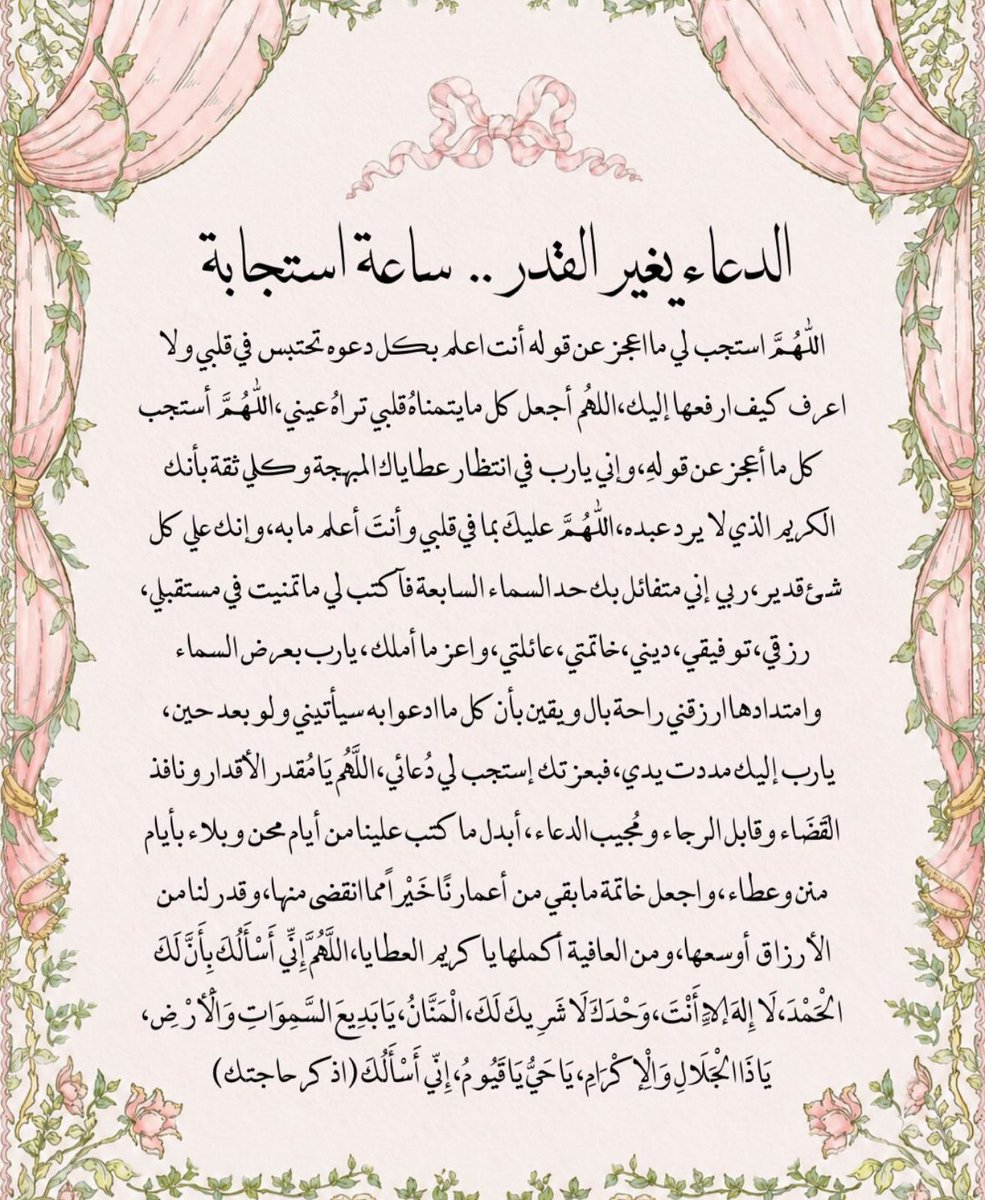 الدعاء يغير القدر .. ساعة استجابة
اللَّهُمَّ استجب لي ما اعجز عن قوله أنت اعلم بكل دعوه تحتبس في قلبي ولا
اعرف كيف ارفعها إليك، اللهُم أجعل كل ما يتمناهُ قلبي تراهُ عيني، اللَّهُمَّ أستجب
كل ما أعجز عن قولهِ، وإني يارب في انتظار عطاياك المبهجة وكلي ثقة بأنك
الكريم الذي لا يرد عبده، اللَّهُمَّ عليكَ بما في قلبي وأنتَ أعلم مابه، وإنك علي كل
شئ قدير، ربي إني متفائل بك حد السماء السابعة فآكتب لي ماتمنيت في مستقبلي،
رزقي، توفيقي، ديني، خاتمتي، عائلتي، واعز ما أملك، يارب بعرض السماء
وامتدادها ارزقني راحة بال ويقين بأن كل ما ادعوا به سيأتيني ولو بعد حين،
يارب إليك مددت يدي، فبعزتك إستجب لي دُعائي، اللَّهُم يَا مُقدر الأقدار ونافذ
القَضَاء وقابل الرجاء ومُجيب الدعاء، أبدل ما كتب علينا من أيام محن وبلاء بأيام
منن وعطاء، واجعل خاتمة مابقي من أعمارنًا خَيْراً مما انقضى منها، وقدر لنا من
الأرزاق أوسعها، ومن العافية أكملها يا كريم العطايا، اللَّهُمَّ إِنِّي أَسْأَلُكَ بِأَنَّ لَكَ
الْحَمْدَ، لَا إِلهَ إِلاَّ أَنْتَ، وَحْدَكَ لَا شَرِيكَ لَكَ، الْمَنَّانُ، يَا بَدِيعَ السَّمِوَاتِ وَالْأرْضِ،
يَا ذَا الْجَلَالِ وَالْإِكْرَامِ، يَا حَيُّ يَا قَيُومُ، إِنِّي أَسْأَلُكَ (اذكر حاجتك)